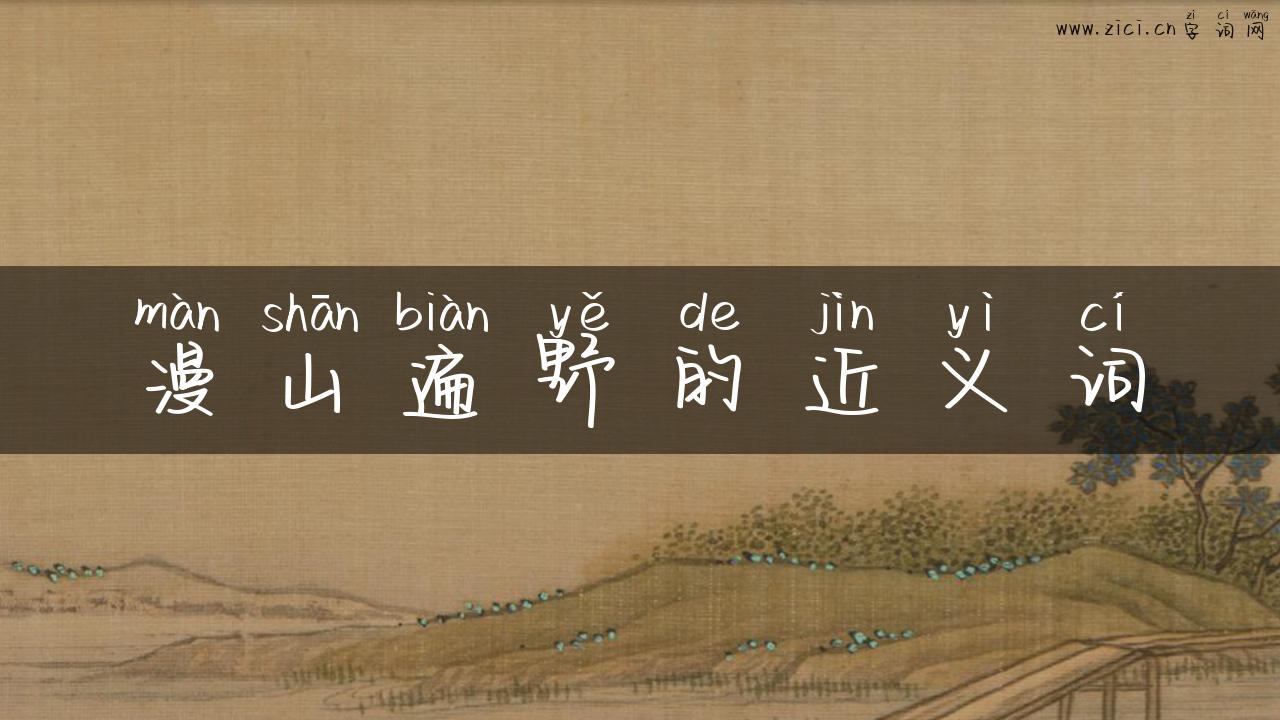 zì cí wǎng
www.zici.cn 字词网
màn shān biàn yě de jìn yì cí
漫山遍野的近义词